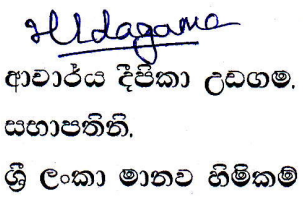 HUdagama
ආචාර්ය දීපිකා උඩගම,
සභාපතිනි,
ශ්‍රී ලංකා මානව හිමිකම්